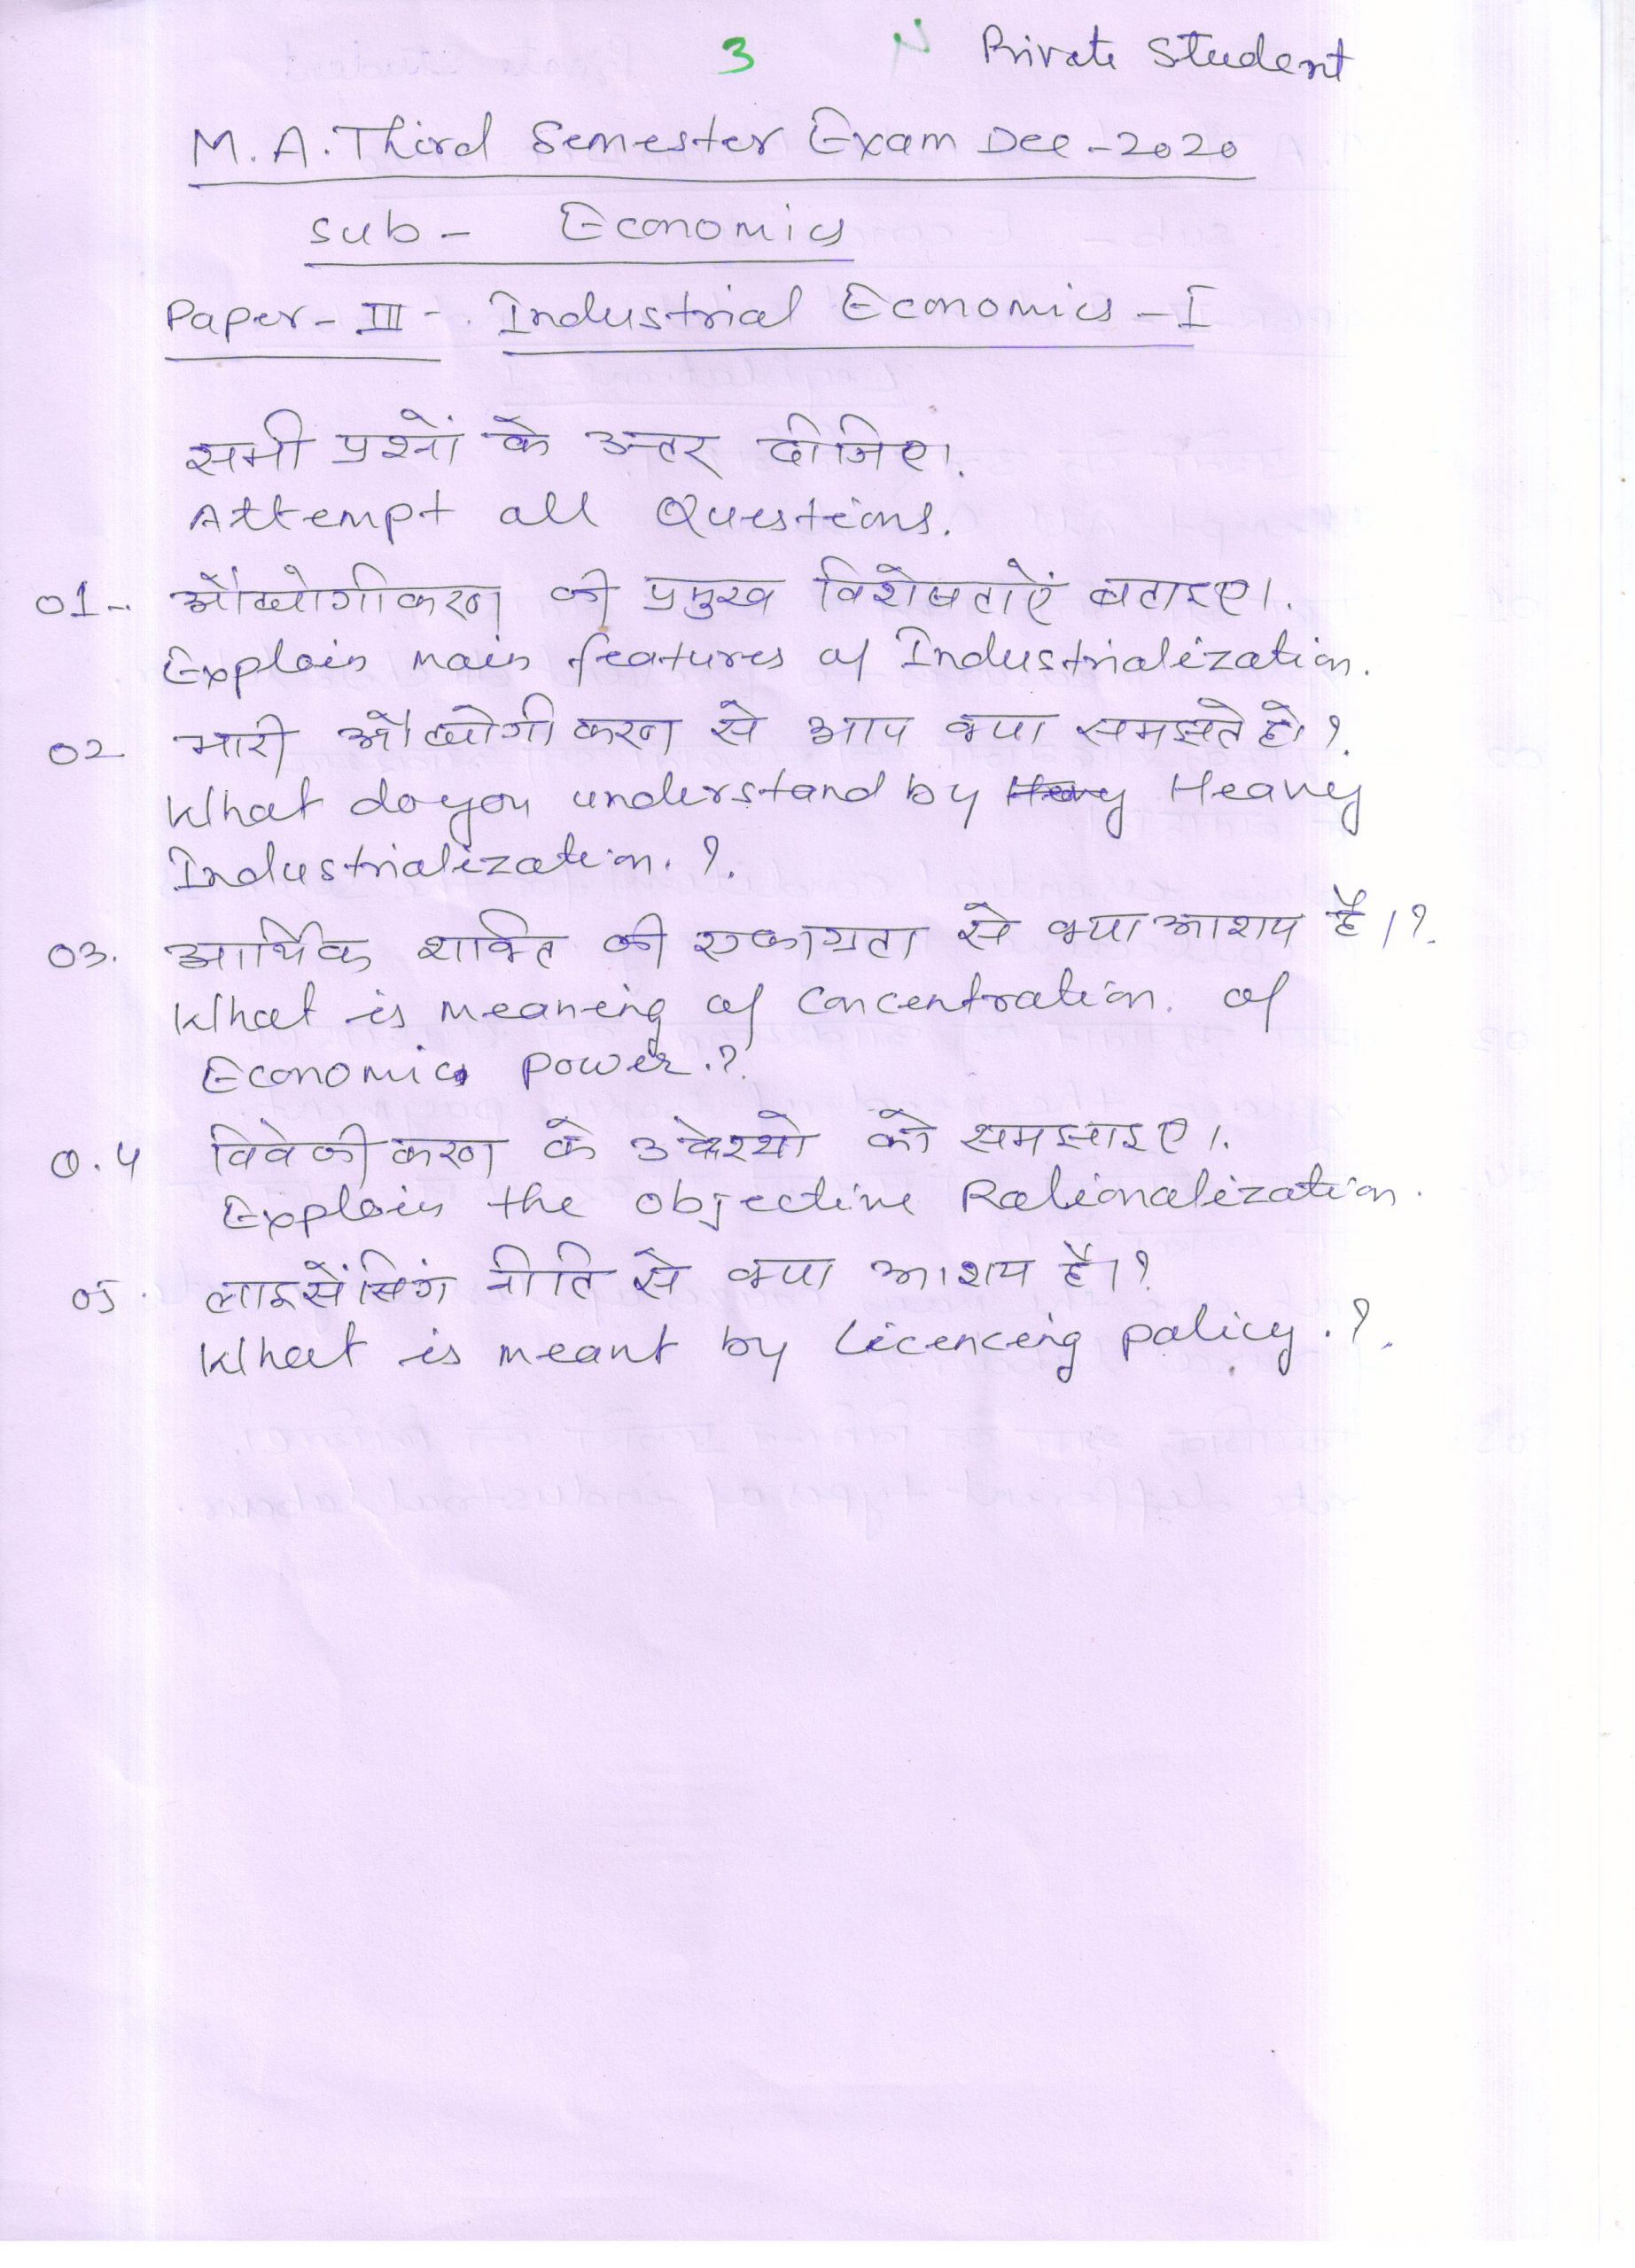 3 Private Student
M.A. Third Semester Exam Dec-2020
Sub- Economics
Paper-III - Industrial Economics - I
सभी प्रश्नों के उत्तर दीजिए।
Attempt all Questions.
01- औद्योगीकरण की प्रमुख विशेषताऐं बताइए।
Explain main features of Industrialization.
02 भारी औद्योगीकरण से आप क्या समझते हो?
What do you understand by Heavy
Industrialization.?
03. आर्थिक शक्ति की एकाग्रता से क्या आशय है।?
What is meaning of Concentration. of
Economic power.?
0.4 विवेकीकरण के उद्देश्यो को समझाइए।
Explain the objective Rationalization.
05. लाइसेंसिंग नीति से क्या आशय है।?
What is meant by Licencing policy.?